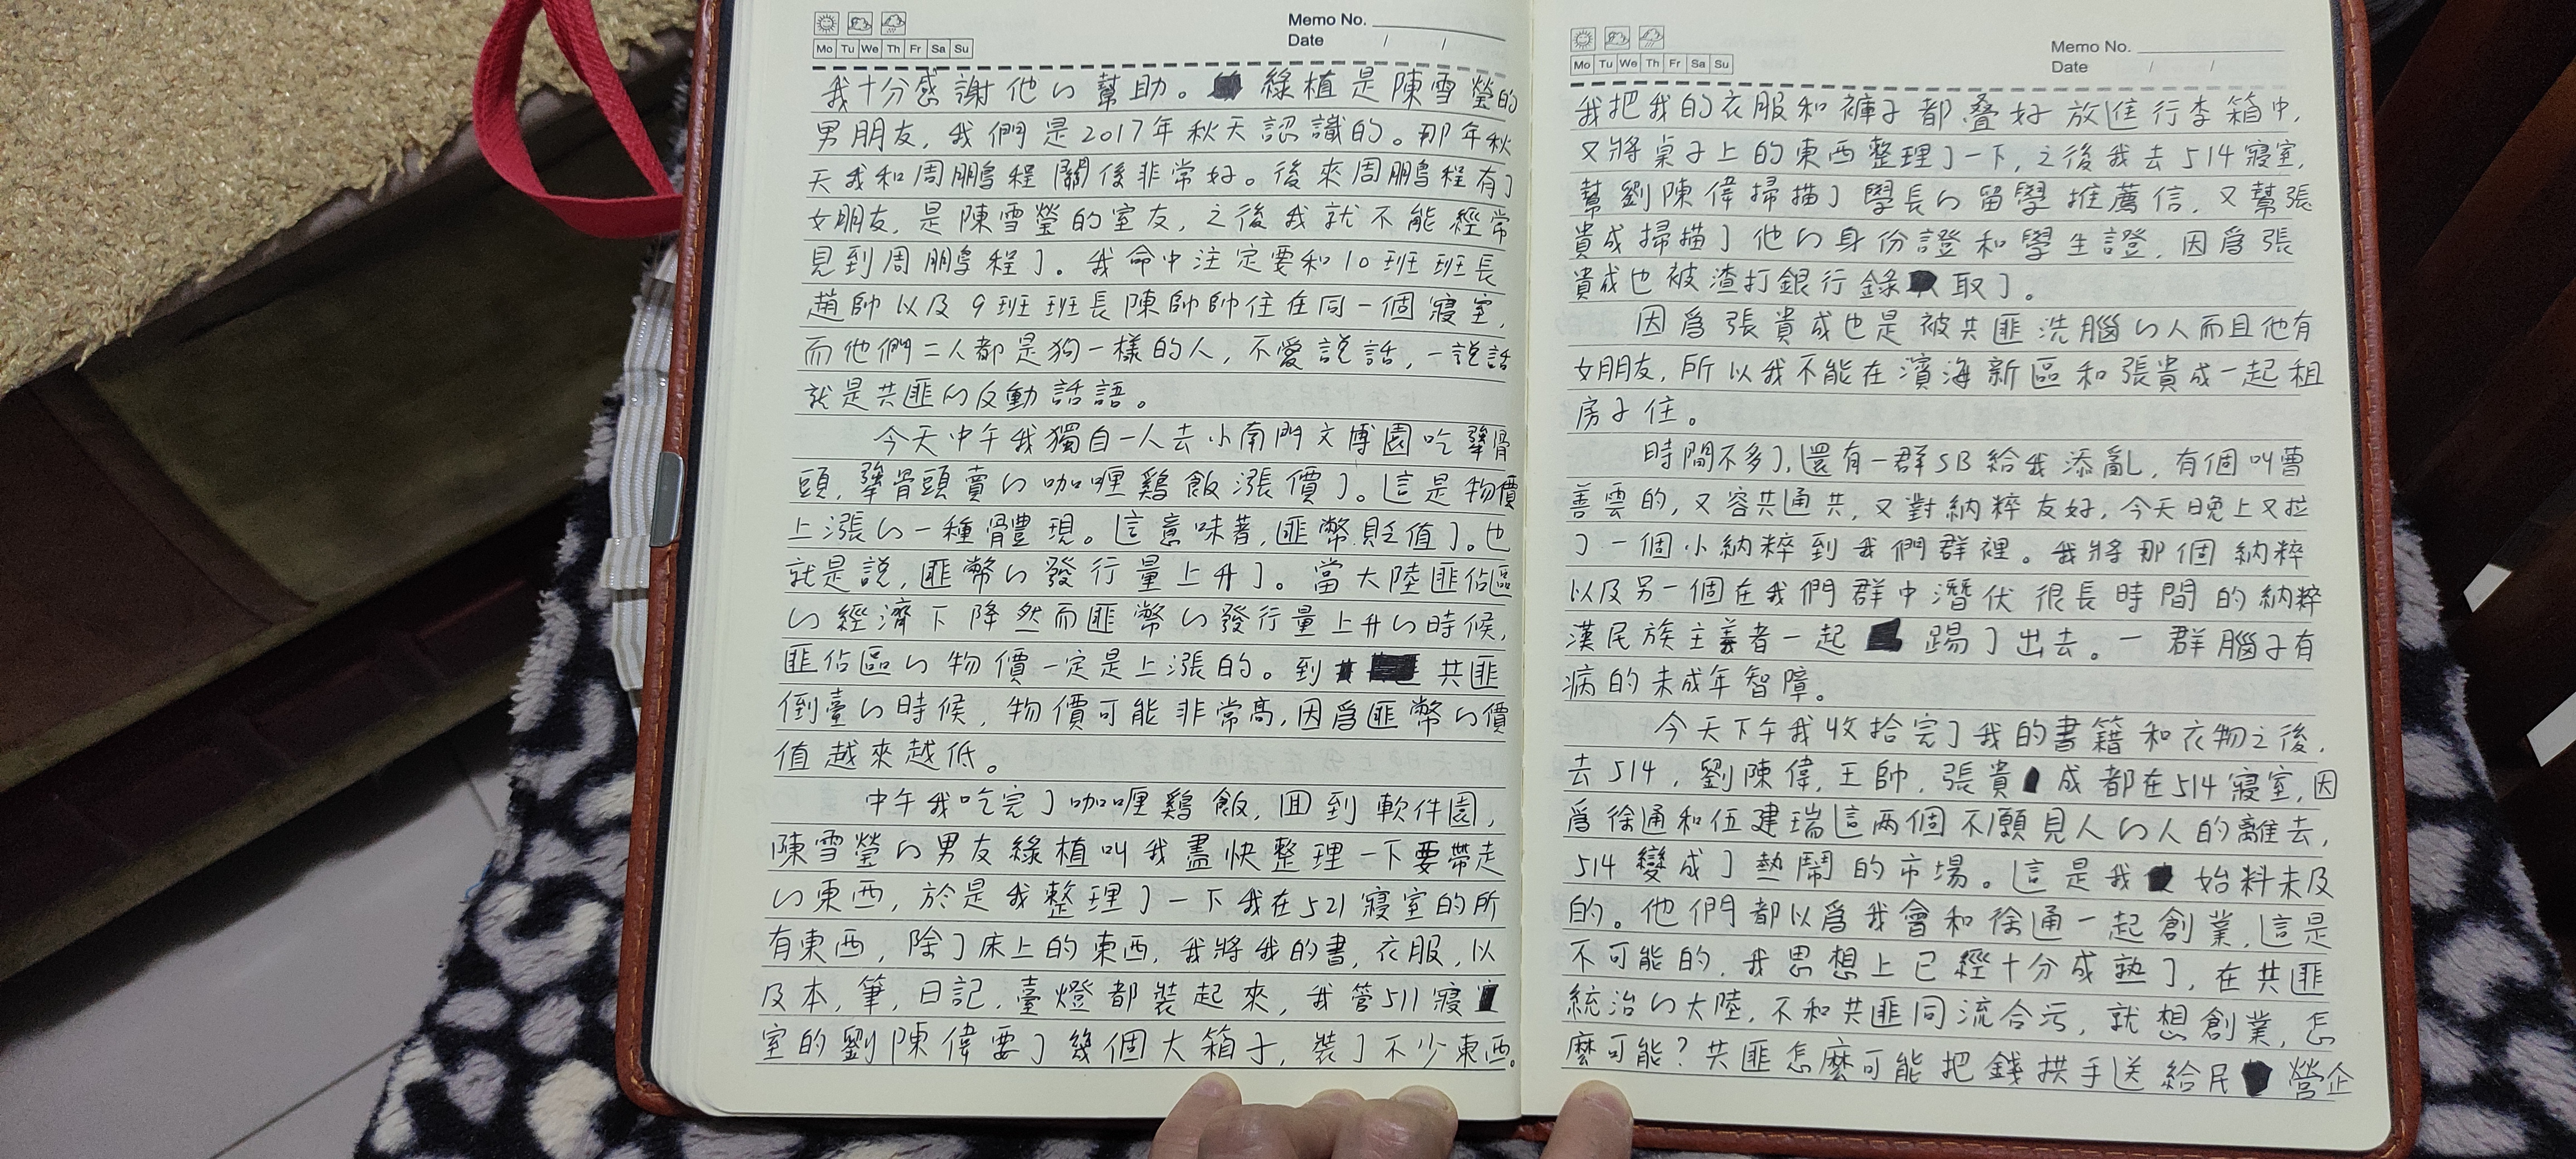 Memo No.
Date / /
Mo Tu We Th Fr Sa Su
我十分感謝他的幫助。綠植是陳雪瑩的
男朋友,我們是2017年秋天認識的。那年秋
天我和周鵬程關係非常好。後來周鵬程有了
女朋友,是陳雪瑩的室友,之後我就不能經常
見到周鵬程了。我命中注定要和10班班長
趙帥以及9班班長陳帥帥住在同一個寢室,
而他們二人都是狗一樣的人,不愛說話,一說話
就是共匪的反動話語。
今天中午我獨自一人去小南門文博園吃犟骨
頭,犟骨頭賣的咖喱鷄飯漲價了。這是物價
上漲的一種體現。這意味著,匪幣貶值了。也
就是説,匪幣的發行量上升了。當大陸匪佔區
的經濟下降然而匪幣的發行量上升的時候,
匪佔區的物價一定是上漲的。到共匪
倒臺的時候,物價可能非常高,因爲匪幣的價
值越來越低。
中午我吃完了咖喱鷄飯,回到軟件園,
陳雪瑩的男友綠植叫我盡快整理一下要帶走
的東西,於是我整理了一下我在521寢室的所
有東西,除了床上的東西,我將我的書,衣服,以
及本,筆,日記,臺燈都裝起來,我管511寢
室的劉陳偉要了幾個大箱子,裝了不少東西。
Memo No.
Date / /
Mo Tu We Th Fr Sa Su
我把我的衣服和褲子都叠好放進行李箱中,
又將桌子上的東西整理了一下,之後我去514寢室,
幫劉陳偉掃描了學長的留學推薦信,又幫張
貴成掃描了他的身份證和學生證,因爲張
貴成也被渣打銀行錄取了。
因爲張貴成也是被共匪洗腦的人而且他有
女朋友,所以我不能在濱海新區和張貴成一起租
房子住。
時間不多了,還有一群SB給我添亂,有個叫曹
善雲的,又容共通共,又對納粹友好,今天晚上又拉
了一個小納粹到我們群裡。我將那個納粹
以及另一個在我們群中潛伏很長時間的納粹
漢民族主義者一起踢了出去。一群腦子有
病的未成年智障。
今天下午我收拾完了我的書籍和衣物之後,
去514,劉陳偉,王帥,張貴成都在514寢室,因
爲徐通和伍建瑞這兩個不願見人的人的離去,
514變成了熱鬧的市場。這是我始料未及
的。他們都以爲我會和徐通一起創業,這是
不可能的,我思想上已經十分成熟了,在共匪
統治的大陸,不和共匪同流合污,就想創業,怎
麼可能?共匪怎麼可能把錢拱手送給民營企